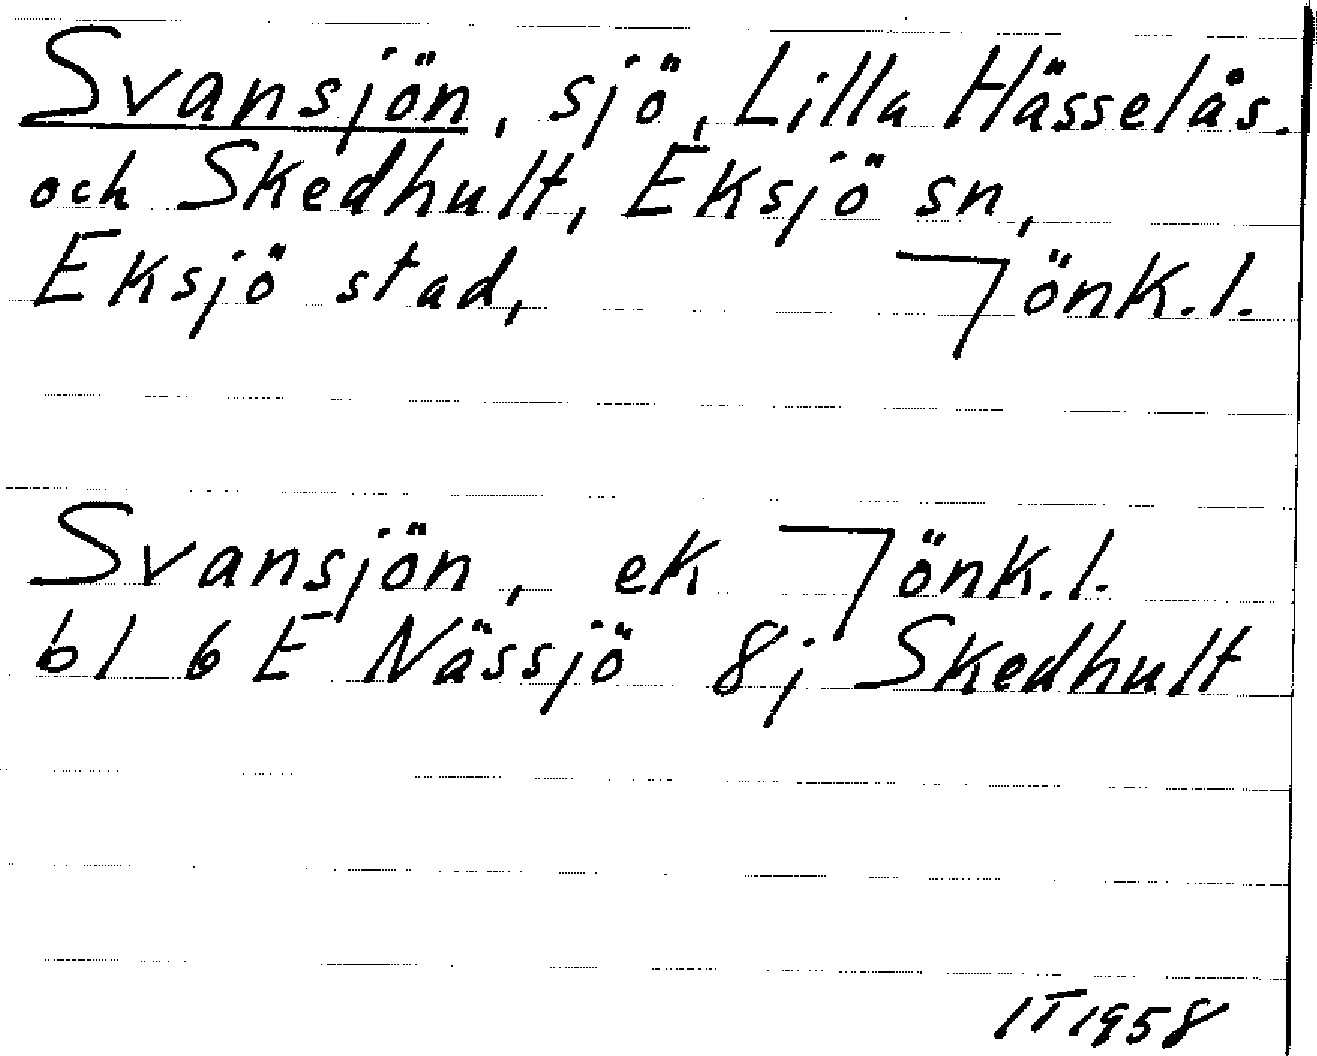 Svansjön, sjö, Lilla Hässelås.
och Skedhult, Eksjö sn,
Eksjö stad, Jönk.l.
Svansjön, ek Jönk.l.
bl 6 E Nässjö 8j Skedhult
IT 1958